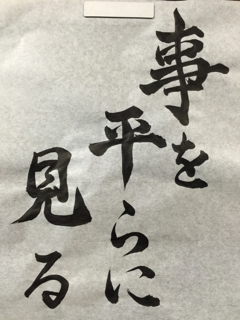 事を
平らに
見る